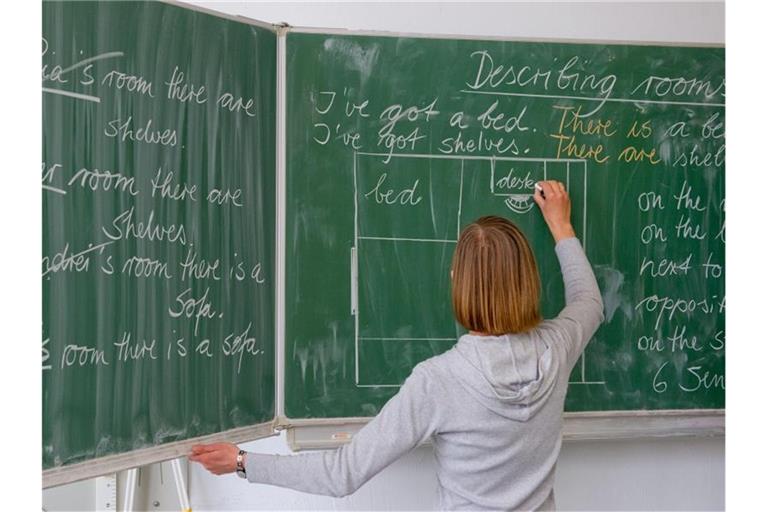 's room there are
Shelves.
room there are
Shelves.
's room there is a
Sofa.
room there is a sofa.
Describing rooms
I've got a bed. There is a
I've got shelves. There are
bed
desk
on the
on the
next to
on the
6